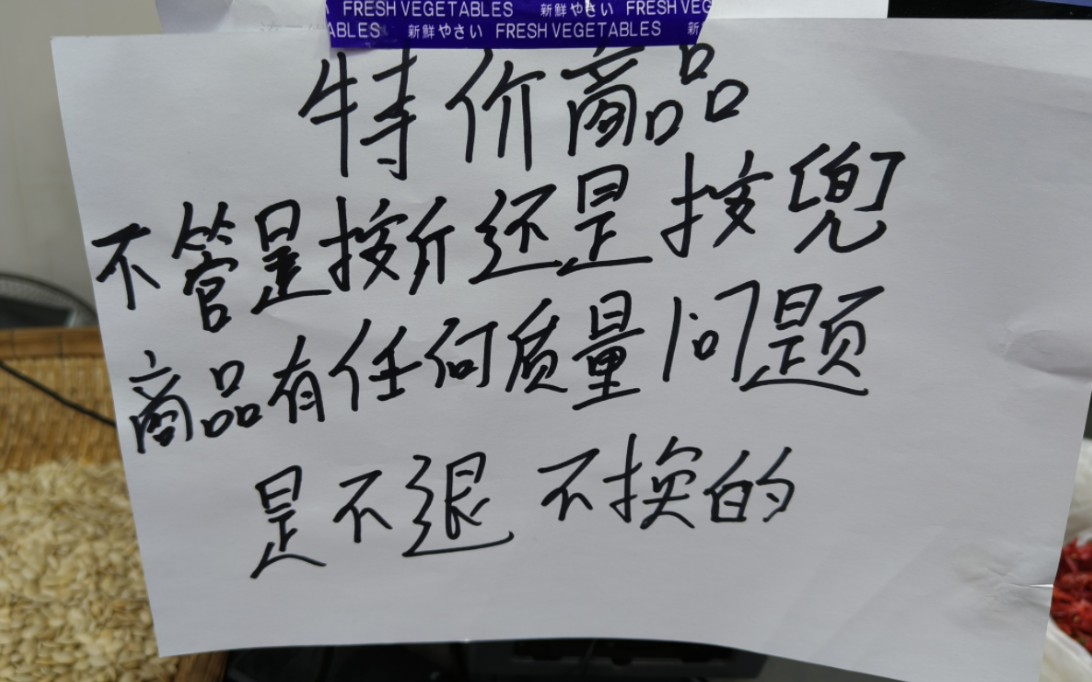 FRESH VEGETABLES 新鮮やさい FRESH VEG
ABLES 新鮮やさい FRESH VEGETABLES 新
特价商品
不管是按斤还是按兜
商品有任何质量问题
是不退不换的